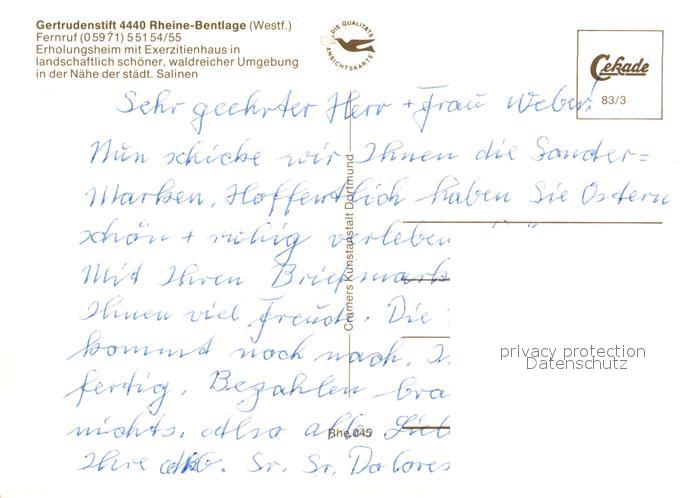 Gertrudenstift 4440 Rheine-Bentlage (Westf.)
Fernruf (05971) 55154/55
Erholungsheim mit Exerzitienhaus in
landschaftlich schöner, waldreicher Umgebung
in der Nähe der städt. Salinen
DIE QUALITÄTS
ANSICHTSKARTE
Cekade
83/3
Sehr geehrter Herr + Frau Weber!
Nun schicke wir Ihnen die Sonder=
Marken. Hoffentlich haben Sie Ostern
schön + ruhig verleben
Mit Ihren Briefmark
Ihnen viel Freude. Die
kommt noch nach.
fertig. Bezahlen bra
nichts. also alles Lieb
Ihre Sr. Sr. Dolores
Cramers Kunstanstalt Dortmund
Rhe 045
privacy protection
Datenschutz